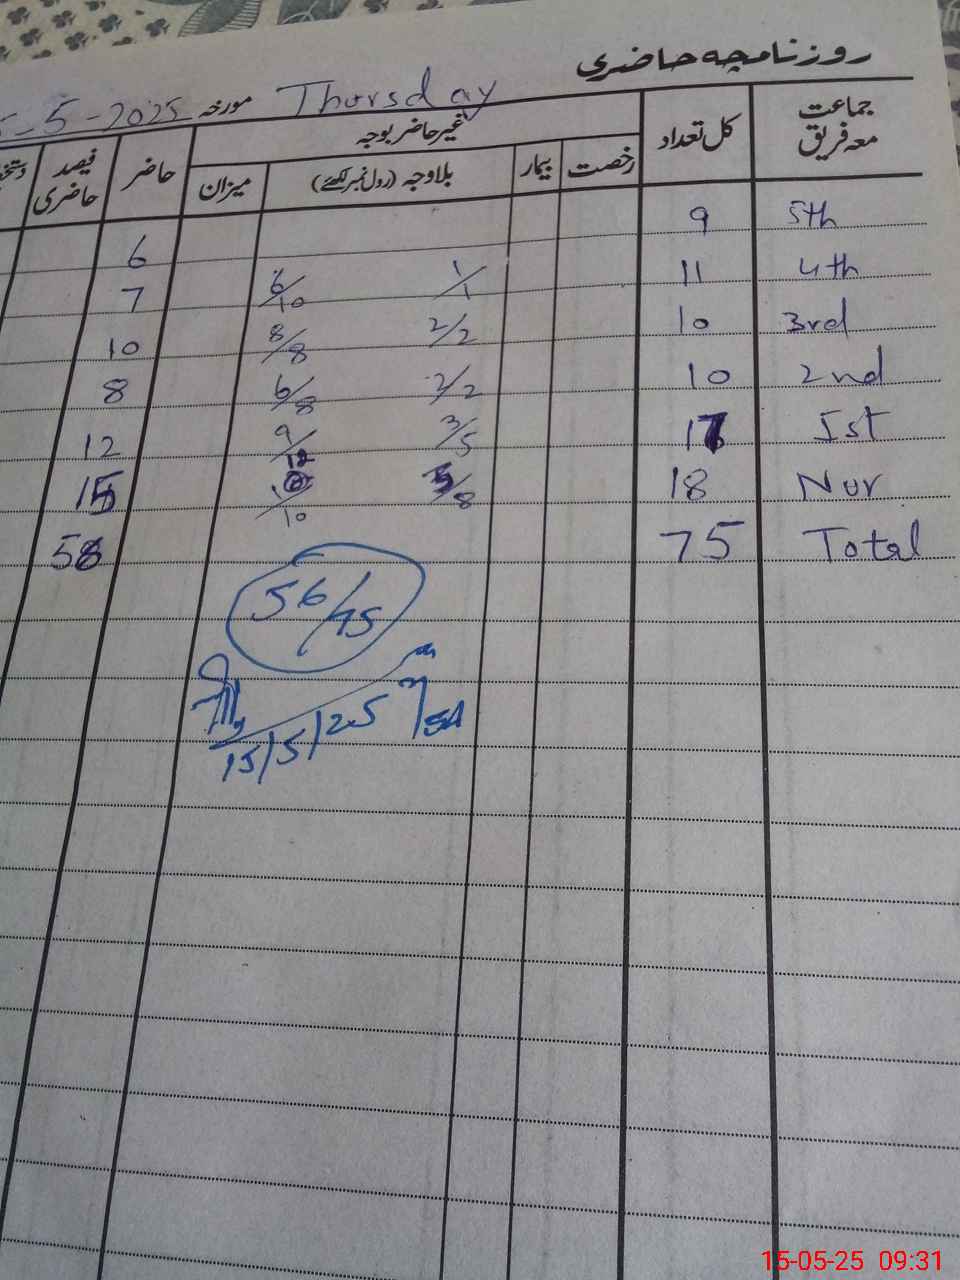 روزنامچہ حاضری
مورخہ Thursday 5-2025
جماعت معہ فریق کل تعداد غیر حاضر بوجہ حاضر فیصد حاضری
رخصت بیمار بلاوجہ (رول نمبر لکھئے) میزان
5th 9 6
4th 11 1/1 6/10 7
3rd 10 2/2 8/8 10
2nd 10 2/2 6/8 8
Ist 17 3/5 9/12 12
Nur 18 /8 /10 15
Total 75 58
56/75
15/5/25
15-05-25 09:31